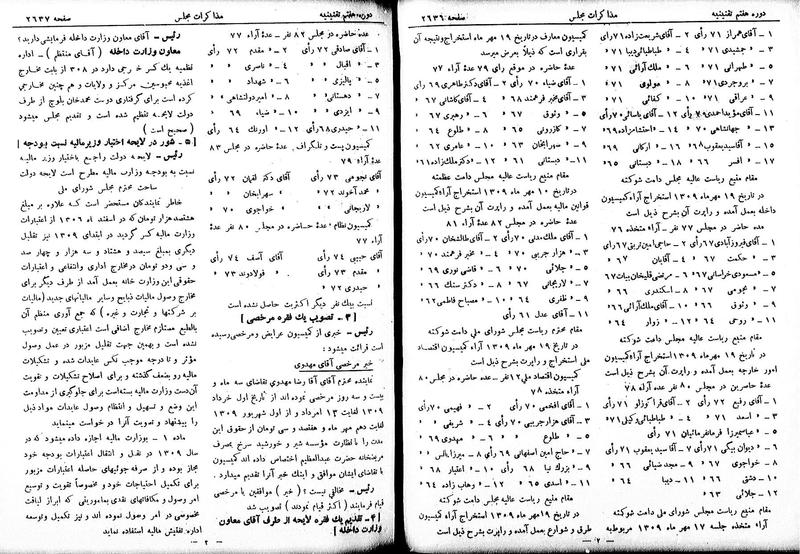 دورهٔ هفتم تقنینیه
مذاکرات مجلس
صفحه ۲۶۳۶
۱ ـ آقای ... ۷۱ رأی ۲ ـ آقای شریعت‌زاده ۷۱ رأی
۳ ـ جمشیدی ۷۱ ۴ ـ طباطبائی دیبا ۷۱
۵ ـ طهرانی ۷۱ ۶ ـ ملک‌آرائی ۷۱
۷ ـ بروجردی ۷۱ ۸ ـ مولوی ۷۱
۹ ـ عراقی ۷۱ ۱۰ ـ کفائی ۷۱
۱۱ ـ آقای مؤید احمدی ۷۰ رأی ۱۲ ـ آقای یاسائی ۷۰ رأی
۱۳ ـ جهانشاهی ۷۰ ۱۴ ـ احتشام‌زاده ۶۹
۱۵ ـ آقا سید یعقوب ۶۸ ۱۶ ـ ارکانی ۶۹
۱۷ ـ افسر ۶۶ ۱۸ ـ دبستانی ۶۵
مقام منیع ریاست عالیه مجلس دامت عظمته
در تاریخ ۱۹ مهر ماه ۱۳۰۹ استخراج آراء کمیسیون
داخله بعمل آمده و راپرت آن بشرح ذیل است
عده حاضر در مجلس ۷۷ نفر ـ آراء متخذه ۷۶
۱ ـ آقای فیروزآبادی ۶۷ رأی ۲ ـ حاجی امین تبریزی ۶۷ رأی
۳ ـ حکمت ۶۷ ۴ ـ آقایان ۶۷
۵ ـ مسعودی خراسانی ۶۷ ۶ ـ مرتضی قلیخان بیات ۶۷
۷ ـ نجومی ۶۷ ۸ ـ اسکندری ۶۶
۹ ـ وثوق ۶۶ ۱۰ ـ آقای ملک‌آرائی ۶۶
۱۱ ـ روحی ۶۴ ۱۲ ـ زوار ۶۴
مقام منیع ریاست مجلس شورای ملی دامت شوکته
در تاریخ ۱۹ مهر ماه ۱۳۰۹ استخراج آراء کمیسیون
امور خارجه بعمل آمده و راپرت بشرح ذیل است.
عدهٔ حاضرین در مجلس ۸۰ نفر عده آراء ۷۸
۱ ـ آقای رفیع ۷۲ رأی ۲ ـ آقای قراگوزلو ۷۱ رأی
۳ ـ اسعد ۷۱ ۴ ـ طباطبائی وکیلی ۷۱
۵ ـ عباس میرزا فرمانفرمائیان ۷۱ رأی
۶ ـ دیوان بیگی ۷۱ رأی ۷ ـ آقا سید یعقوب ۷۱ رأی
۸ ـ خواجوی ۶۷ ۹ ـ مجد ضیائی ۶۶
۱۰ ـ دشتی ۶۶ ۱۱ ـ دیبا ۶۴
۱۲ ـ جلائی ۶۳
مقام منیع ریاست مجلس شورای ملی دامت شوکته
آراء متخذه جلسه ۱۷ مهر ماه ۱۳۰۹ مربوطیه
کمیسیون معارف در تاریخ ۱۹ مهر ماه استخراج و نتیجه آن
بقراری است که ذیلاً بعرض میرسد
عدهٔ حاضره در موقع رأی ۷۹ عدهٔ آراء ۷۷
۱ ـ آقای ضیاء ۷۰ رأی ۲ ـ آقای دکتر طاهری ۶۹ رأی
۳ ـ آقای مخبر فرهمند ۶۸ ۴ ـ آقای کاشانی ۶۷
۵ ـ وثوق ۶۷ ۶ ـ رهبری ۶۷
۷ ـ کازرونی ۶۵ ۸ ـ طلوع ۶۴
۹ ـ سهراب‌خان ۶۳ ۱۰ ـ عامری ۶۲
۱۱ ـ دبستانی ۶۱ ۱۲ ـ دکتر ملک‌زاده ۶۱
مقام منیع ریاست عالیه مجلس دامت عظمته
در تاریخ ۱۰ مهر ماه ۱۳۰۹ استخراج آراء کمیسیون
قوانین مالیه بعمل آمده و راپرت آن بشرح ذیل است
عدهٔ حاضره در مجلس ۸۲ عدهٔ آراء ۸۱
۱ ـ آقای ملک مدنی ۷۰ رأی ۲ ـ آقای طالشخان ۷۰ رأی
۳ ـ هزار جریبی ۷۰ ۴ ـ مخبر فرهمند ۷۰
۵ ـ جلائی ۷۰ ۶ ـ فاضی نوری ۶۹
۷ ـ لاریجانی ۶۷ ۸ ـ دکتر سنک ۶۶
۹ ـ ظفری ۶۴ ۱۰ ـ مصباح فاطمی ۶۲
۱۱ ـ آقای عدل ۶۱ رأی
مقام محترم ریاست مجلس شورای ملی دامت شوکته
در تاریخ ۱۹ مهر ماه ۱۳۰۹ استخراج آراء کمیسیون اقتصاد
ملی استخراج و راپرت بشرح ذیل است
کمیسیون اقتصاد ملی ۱۲ نفر ـ عده حاضره در مجلس ۸۰
آراء متخذه ۷۸
۱ ـ آقای افخمی ۷۰ رأی ۲ ـ فهیمی ۷۰ رأی
۳ ـ آقای هزارجریبی ۷۰ رأی ۴ ـ شریفی
۵ ـ طلوع ۶ ـ مهدوی ۶۹
۷ ـ حاج امین اصفهانی ۶۹ رأی ۸ ـ میرزا یانس
۹ ـ بزرگ نیا ۶۸ رأی ۱۰ ـ اعتبار ۶۸
۱۱ ـ اسدی ۶۵ ۱۲ ـ وهاب زاده ۶۴
مقام منیع ریاست مجلس شورای ملی دامت شوکته
در تاریخ ۱۹ مهر ماه ۱۳۰۹ استخراج آراء کمیسیون
طرق و شوارع بعمل آمده و راپرت آن بشرح ذیل است
ـ ۲ ـ
دوره هفتم تقنینیه
مذاکرات مجلس
صفحه ۲۶۳۷
عده حاضره در مجلس ۸۲ نفر ـ عدهٔ آراء ۷۷
۱ ـ آقای صادقی ۷۲ رأی ۲ ـ مقدم ۷۲ رأی
۳ ـ اقبال ۴ ـ ناصری
۵ ـ پالیزی ۶ ـ شهداد
۷ ـ دهستانی ۸ ـ امیر دولتشاهی
۹ ـ ایزدی ۱۰ ـ ضیاء ۶۹
۱۱ ـ حیدری ۶۸ رأی ۱۲ ـ اورنک ۶۴ رأی
کمیسیون پست و تلگراف. عدهٔ حاضره در مجلس ۸۳
عدهٔ آراء ۷۹
آقای نجومی ۷۳ رأی آقای دکتر لقمان ۷۲ رأی
محمد آخوند ۷۲ سهراب‌خان
لاریجانی خواجوی ۷۰
کمیسیون نظام: عدهٔ حاضره در مجلس ۸۰ نفر عدهٔ
آراء ۷۷
آقای حبیبی ۷۴ رأی آقای آصف ۷۴ رأی
مقدم ۷۳ رأی فولادوند ۷۳
حیدری ۷۲
نسبت بیک نفر دیگر اکثریت حاصل نشده است
[ ۳ ـ تصویب یک فقره مرخصی ]
رئیس ـ خبری از کمیسیون عرایض و مرخصی رسیده
است قرائت میشود:
خبر مرخصی آقای مهدوی
نماینده محترم آقای آقا رضا مهدوی تقاضای سه ماه و
بیست و سه روز مرخصی نموده‌اند از تاریخ اول خرداد
۱۳۰۹ لغایت ۱۳ امرداد و از اول شهریور ۱۳۰۹
لغایت دهم مهر ماه و هفتصد و سی تومان از حقوق این
مدت را با نظارت مؤسسه شیر و خورشید سرخ بمصرف
مریضخانه حضرت عبدالعظیم اختصاص داده‌اند کمیسیون
با تقاضای ایشان موافق و اینک خبر آنرا تقدیم میدارد.
رئیس ـ مخالفی نیست؟ ( خیر ) موافقین با مرخصی
قیام فرمایند ( اکثر قیام نمودند ) تصویب شد
[ ۴ ـ تقدیم یک فقره لایحه از طرف آقای معاون
وزارت داخله ]
رئیس ـ آقای معاون وزارت داخله فرمایشی دارید؟
معاون وزارت داخله ( آقای منتظم ) ـ اداره
نظمیه یک کسر خرجی دارد در ۳۰۸ از بابت مخارج
اغذیه محبوسین مرکز و ولایات و هم چنین مخارجی
کرده است برای گرفتاری دوست محمدخان بلوچ از طرف
دولت لایحه تنظیم شده است و تقدیم مجلس میشود
( صحیح است )
[ ۵ ـ شور در لایحه اختیار وزیر مالیه نسبت بودجه ]
رئیس ـ لایحه دولت راجع باختیار وزیر مالیه
نسبت به بودجه وزارت مالیه مطرح است لایحه دولت
ساحت محترم مجلس شورای ملی
خاطر نمایندگان مستحضر است که علاوه بر مبلغ
هشتصد هزار تومان که در اسفند ماه ۱۳۰۶ از اعتبارات
وزارت مالیه کسر گردید در ابتدای ۱۳۰۹ نیز تقلیل
دیگری بمبلغ سیصد و هشتاد و سه هزار و چهار صد
و سی و دو تومان در مخارج اداری و انتفاعی و اعتبارات
حقوقی این وزارت خانه بعمل آمد از طرف دیگر برای
مخارج وصول مالیات ذبایح و سایر مالیاتهای جدید (مالیات
بر شرکتها و تجارت و غیره) که جمع آوری منظم آن
بالطبع مستلزم مخارج اضافی است اعتباری تعیین و تصویب
نشده است و بهمین جهت تقلیل مزبور در عمل وصول
مؤثر و تا درجه موجب نکس عایدات شده و تشکیلات
مالیه رو بضعف گذشته و برای اصلاح تشکیلات و تقویت
آن دست وزارت مالیه بسته است برای جلوگیری از مداومت
این وضع و تسهیل و انتظام وصول عایدات مواد ذیل
را پیشنهاد و تصویب آنرا درخواست مینماید
ماده ۱ ـ بوزارت مالیه اجازه داده میشود که در
سال ۱۳۰۹ در نقل و انتقال اعتبارات بودجه خود
مجاز بوده و از صرفه جوئیهای حاصله اعتبارات مزبور
برای تکمیل احتیاجات خود و مخصوصاً تقویت و توسیع
امر وصول و مکافاتهای نقدی بمامورینی که ابراز لیاقت
مخصوصی در امر وصول نموده‌اند و نیز تکمیل و توسعه
اداره تفتیش مالیه استفاده نماید
ـ ۲ ـ